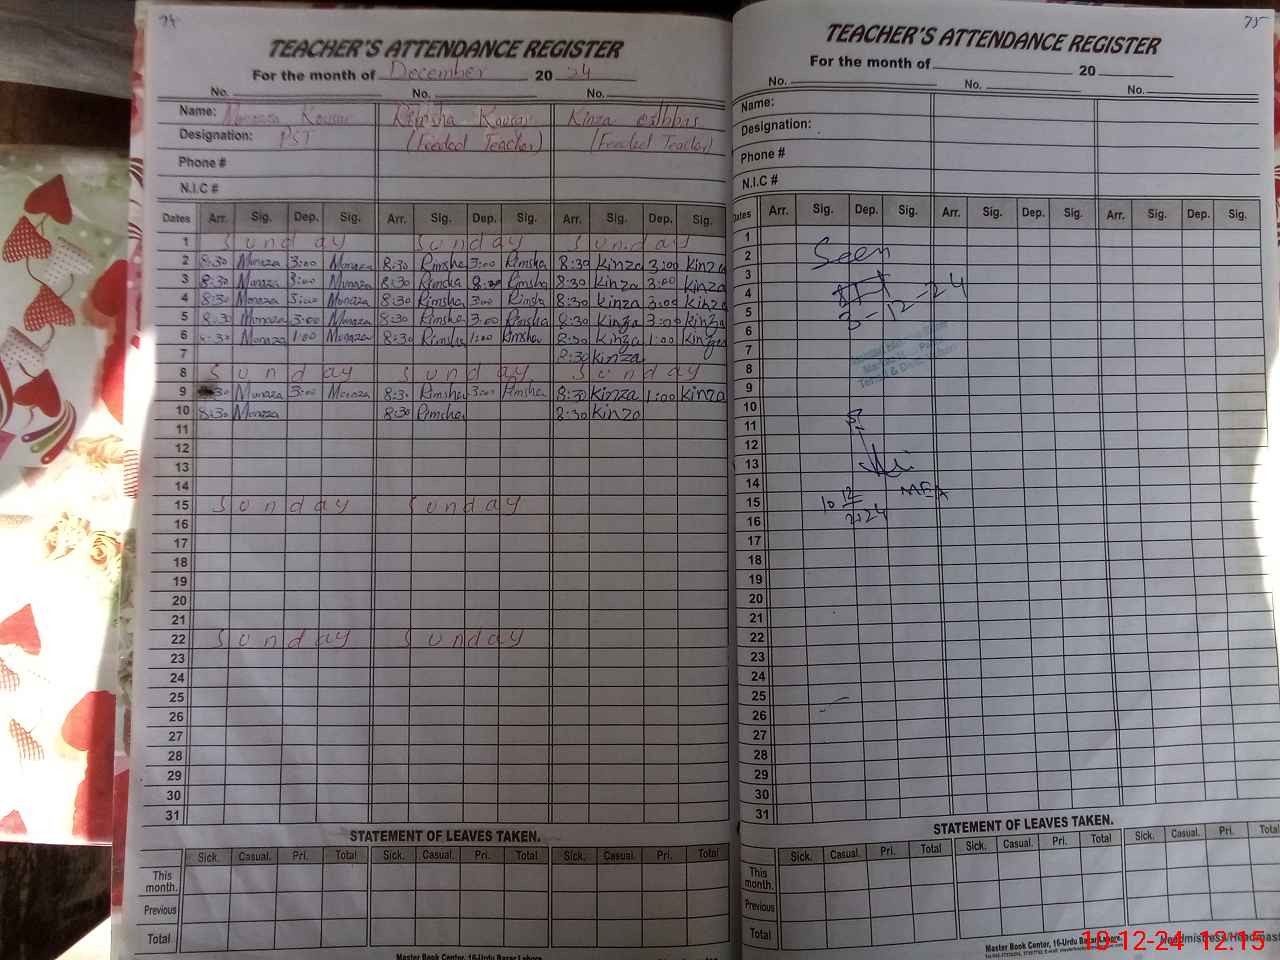 74
TEACHER'S ATTENDANCE REGISTER
For the month of December 20 24
No. No. No.
Name: Monaza Kousar Rimsha Kousar Kinza
Designation: PST (Feeded Teacher) (Feeded Teacher)
Phone #
N.I.C #
Dates Arr. Sig. Dep. Sig. Arr. Sig. Dep. Sig. Arr. Sig. Dep. Sig.
1 Sunday Sunday Sunday
2 8:30 Monaza 3:00 Monaza 8:30 Rimsha 3:00 Rimsha 8:30 Kinza 3:00 Kinza
3 8:30 Monaza 3:00 Monaza 8:30 Rimsha Rimsha 8:30 Kinza 3:00 Kinza
4 8:30 Monaza 3:00 Monaza 8:30 Rimsha 3:00 Rimsha 8:30 Kinza 3:00 Kinza
5 8:30 Monaza 3:00 Monaza 8:30 Rimsha 3:00 Rimsha 8:30 Kinza 3:00 Kinza
6 8:30 Monaza 1:00 Monaza 8:30 Rimsha 1:00 Rimsha 8:30 Kinza 1:00 Kinza
7 8:30 Kinza
8 Sunday Sunday Sunday
9 8:30 Monaza 3:00 Monaza 8:30 Rimsha 3:00 Rimsha 8:30 Kinza 1:00 Kinza
10 8:30 Monaza 8:30 Rimsha 8:30 Kinza
11
12
13
14
15 Sunday Sunday
16
17
18
19
20
21
22 Sunday Sunday
23
24
25
26
27
28
29
30
31
STATEMENT OF LEAVES TAKEN.
Sick. Casual. Pri. Total Sick. Casual. Pri. Total Sick. Casual. Pri. Total
This month.
Previous
Total
Master Book Center, 16-Urdu Bazar Lahore
75
TEACHER'S ATTENDANCE REGISTER
For the month of 20
No. No. No.
Name:
Designation:
Phone #
N.I.C #
Dates Arr. Sig. Dep. Sig. Arr. Sig. Dep. Sig. Arr. Sig. Dep. Sig.
1
2 Seen
3
4
5 3-12-24
6
7
8
9
10
11
12
13
14 MEA
15 10 12
16 2024
17
18
19
20
21
22
23
24
25
26
27
28
29
30
31
STATEMENT OF LEAVES TAKEN.
Sick. Casual. Pri. Total Sick. Casual. Pri. Total Sick. Casual. Pri. Total
This month.
Previous
Total
Master Book Center, 16-Urdu Bazar Lahore.
Headmistress/Headmast
10-12-24 12:15